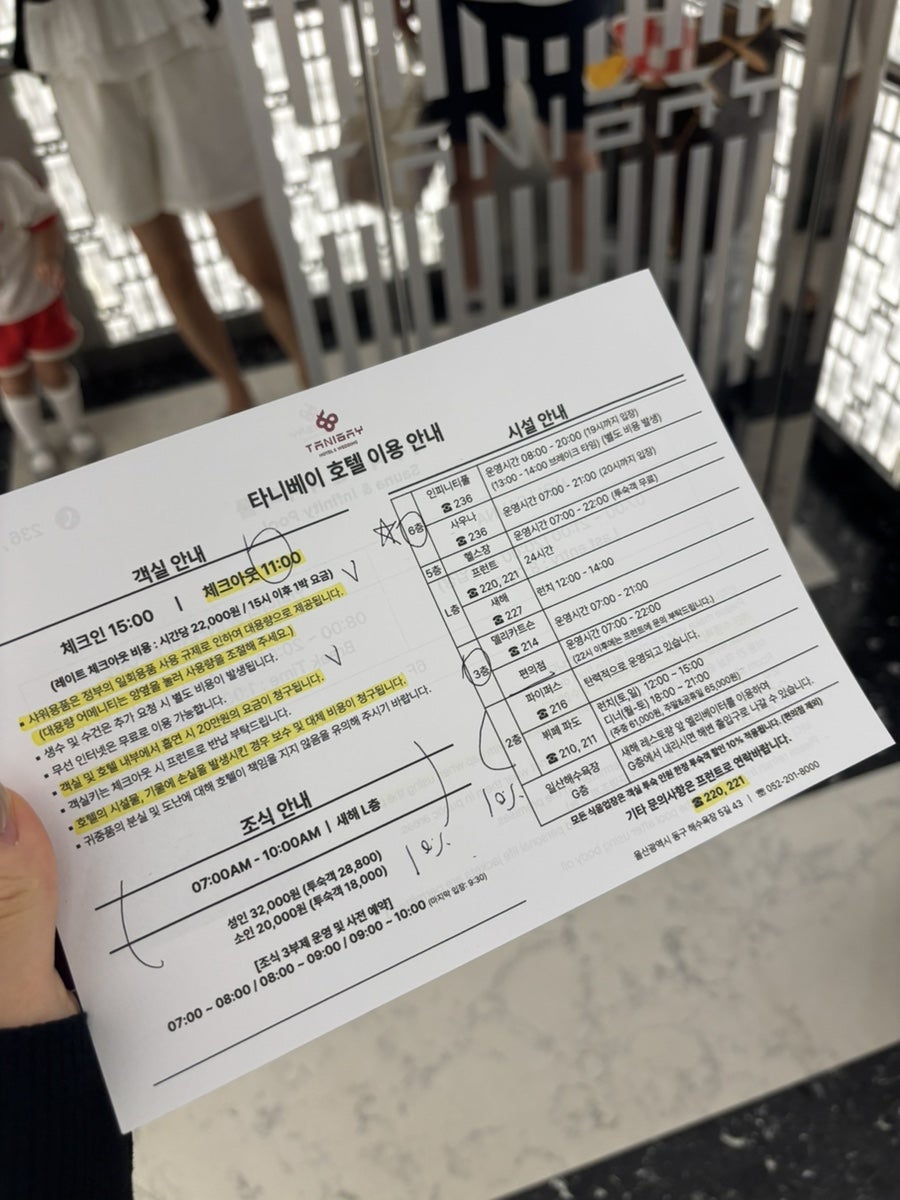 TANIBAY
TANIBAY
HOTEL & WEDDING
타니베이 호텔 이용 안내
객실 안내
체크인 15:00 | 체크아웃 11:00
(레이트 체크아웃 비용 : 시간당 22,000원 / 15시 이후 1박 요금)
▪ 샤워용품은 정부의 일회용품 사용 규제로 인하여 대용량으로 제공됩니다.
(대용량 어메니티는 양옆을 눌러 사용량을 조절해 주세요.)
▪ 생수 및 수건은 추가 요청 시 별도 비용이 발생됩니다.
▪ 무선 인터넷은 무료로 이용 가능합니다.
▪ 객실 및 호텔 내부에서 흡연 시 20만원의 요금이 청구됩니다.
▪ 객실키는 체크아웃 시 프런트로 반납 부탁드립니다.
▪ 호텔의 시설물, 기물에 손실을 발생시킨 경우 보수 및 대체 비용이 청구됩니다.
▪ 귀중품의 분실 및 도난에 대해 호텔이 책임을 지지 않음을 유의해 주시기 바랍니다.
조식 안내
07:00AM - 10:00AM | 새해 L층
성인 32,000원 (투숙객 28,800)
소인 20,000원 (투숙객 18,000)
10%
[조식 3부제 운영 및 사전 예약]
07:00 ~ 08:00 / 08:00 ~ 09:00 / 09:00 ~ 10:00 (마지막 입장: 9:30)
시설 안내
6층
인피니티풀
☎ 236
운영시간 08:00 - 20:00 (19시까지 입장)
(13:00 - 14:00 브레이크 타임) (별도 비용 발생)
사우나
☎ 236
운영시간 07:00 - 21:00 (20시까지 입장)
5층
헬스장
운영시간 07:00 - 22:00 (투숙객 무료)
L층
프런트
☎ 220, 221
24시간
새해
☎ 227
런치 12:00 - 14:00
3층
델리카트슨
☎ 214
운영시간 07:00 - 21:00
편의점
운영시간 07:00 - 22:00
(22시 이후에는 프런트에 문의 부탁드립니다.)
2층
파이퍼스
☎ 216
탄력적으로 운영되고 있습니다.
뷔페 파도
☎ 210, 211
런치(토,일) 12:00 - 15:00
디너(월-토) 18:00 - 21:00
(주중 61,000원, 주말&공휴일 65,000원)
10%
일산해수욕장
G층
새해 레스토랑 앞 엘리베이터를 이용하여
G층에서 내리시면 해변 출입구로 나갈 수 있습니다.
모든 식음업장은 객실 투숙 인원 한정 투숙객 할인 10% 적용됩니다. (편의점 제외)
기타 문의사항은 프런트로 연락바랍니다.
☎ 220, 221
울산광역시 동구 해수욕장 5길 43 | ☏ 052-201-8000